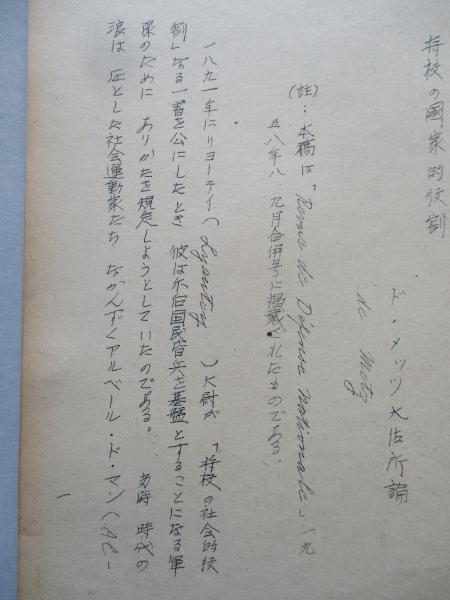 将校の国家的役割
ド・メッツ大佐所論
de Metz
(註):本稿は「Revue de Défense Nationale」一九
五八年八、九月合併号に掲載されたものである。
一八九一年にリヨーテイ(Lyautey )大尉が「将校の社会的役
割」なる一書を公にしたとき 彼は 国民皆兵を基盤とすることになる軍
隊のために ありかたを規定しようとしていたのである。 当時 時代の
浪は した社会運動家たち なかんずくアルベール・ド・マン(Al-
一